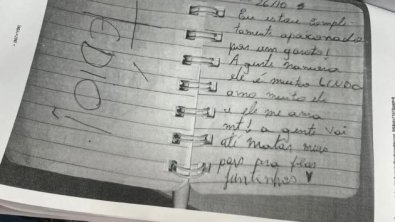 TEDIO!!
26/10
Eu estou comple-
tamente apaixonada
por um garoto!
A gente namora
ele é muito LINDO
amo muito ele
e ele me ama
mt! a gente vai
até matar meus
pais pra ficar
juntinhos ♥